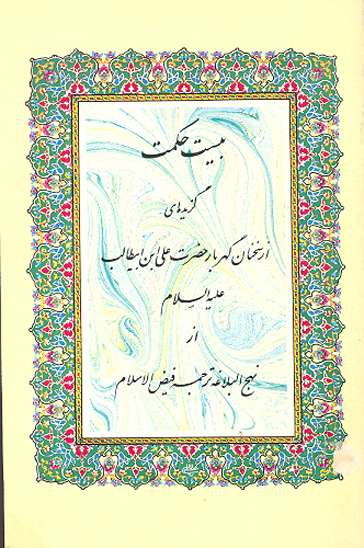 بیست حکمت
گزیده‌ای
از سخنان گهربار حضرت علی ابن ابیطالب
علیه السلام
از
نهج البلاغه ترجمه فیض الاسلام